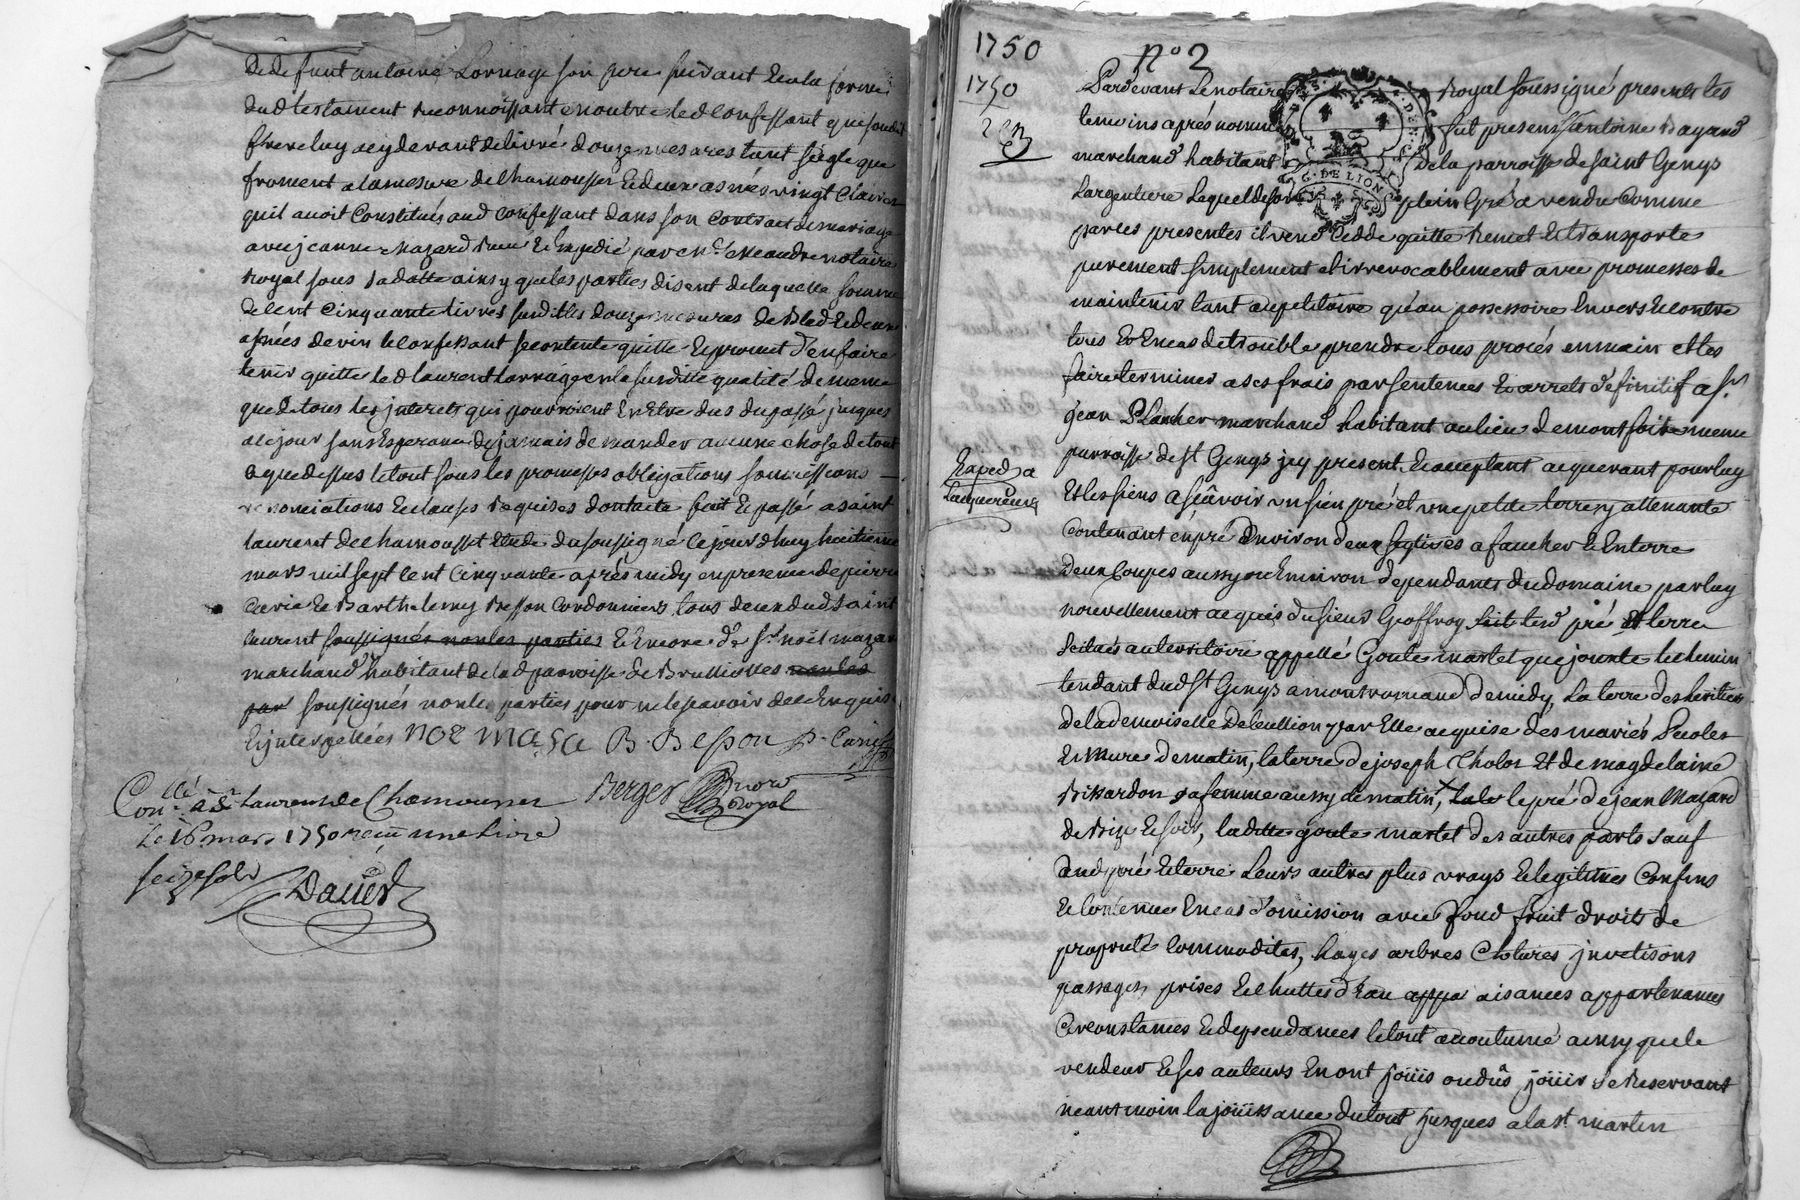 de deffunt antoine Lornage son pere suivant et en la forme
dud testament reconnoissant en outre led confessant que sondit
frere luy a cy devant delivré douze mesures tant seigle que
froment a la mesure de Chamousset et deux asnées vingt
quil avoit Constitués aud confessant dans son Contract de mariage
avec jeanne Mazard receu et Expedié par notaire
Royal sous sa datte ainsy que les parties disent de laquelle somme
de Cent Cinquante livres susdittes douze mesures de Bled et deux
asnées de vin le Confessant se contente quitte et promet d'en faire
tenir quitte led laurent Lornage en la susditte qualité de meme
que de tous les jnterets qui pourroient En Etre dus du passé jusques
a ce jour sans Esperance de jamais demander aucune chose de tout
ce que dessus le tout sous les promesses obligations soumissions
renonciations et clauses requises dont acte fait et passé a saint
laurent de Chamousset Etude du soussigné ce jourd'huy huitieme
mars mil sept cent Cinquante aprés midy en presence de pierre
et Barthelemy Besson Cordonniers tous deux dud saint
laurent soussignés non les parties et Encore de sr noël mazard
marchand habitant de lad parroisse de Brullioles non les
par soussignés non les parties pour ne le scavoir de ce Enquis
Et jnterpellées noe masa B. Besson P.
Berger nore Royal
Conllé a St Laurent de Chamousset
le 16 mars 1750 receu une Livre
seize sols
Daued
1750
1750
No 2
Pardevant Le notaire Royal soussigné presents les
temoins aprés nommés fut present sr antoine Bayard
marchand habitant de la parroisse de saint Genys
Largentiere Lequel de son plein Gré a vendu Comme
par ces presentes il vend Cedde quitte remet et transporte
purement simplement et irrevocablement avec promesses de
maintenir tant au petitoire qu'au possessoire Envers et contre
tous et En cas de trouble prendre tous procés en main et les
faire terminer a ses frais par sentences et arrets definitif a sr
jean Plancher marchand habitant au lieu de montfort meme
parroisse de st Genys jcy present et acceptant acquerant pour luy
Exped a
Lacquereur
Et les siens a sçavoir un sien pré et une petite terre y attenante
Contenant en pré Environ deux seytives a faucher et En terre
deux Coupes aussy ou Environ dependants du domaine par luy
nouvellement acquis du sieur Geoffroy lesd pré et terre
scitués au territoire appellé Goute martet que jouxte le chemin
tendant dud st Genys a montromand de midy, la terre des heritiers
de la demoiselle par Elle acquise des mariés
et Mure de matin, la terre de joseph Cholet Et de magdelaine
Bissardon sa femme aussy de matin, le pré de jean Mazard
de Bize et soir, laditte goute martet des autres parts sauf
aud pré et terre Leurs autres plus vrays et legitimes Confins
et Contenue En cas d'omission avec fond fruit droits de
proprieté Commodites, hayes arbres Clotures jnvetisons
passages, prises et chuttes d'Eau appa aisances appartenances
Circonstances et dependances le tout accoutumé ainsy que le
vendeur et ses auteurs En ont joüis ou dûs joüir se Reservant
neantmoin la joüissance du tout jusques a la st martin
G. DE LION